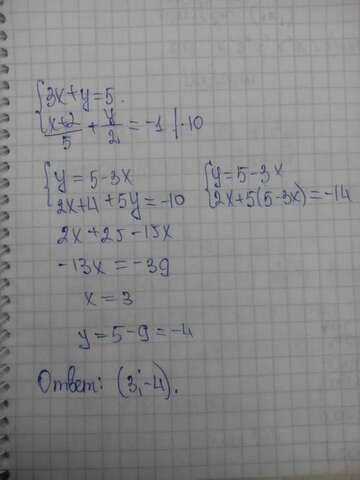 {3x+y=5.
{(x+2)/5 + y/2 = -1 |·10
{y=5-3x
{2x+4+5y=-10
{y=5-3x
{2x+5(5-3x)=-14
2x+25-15x
-13x=-39
x=3
y=5-9=-4
Ответ: (3;-4).